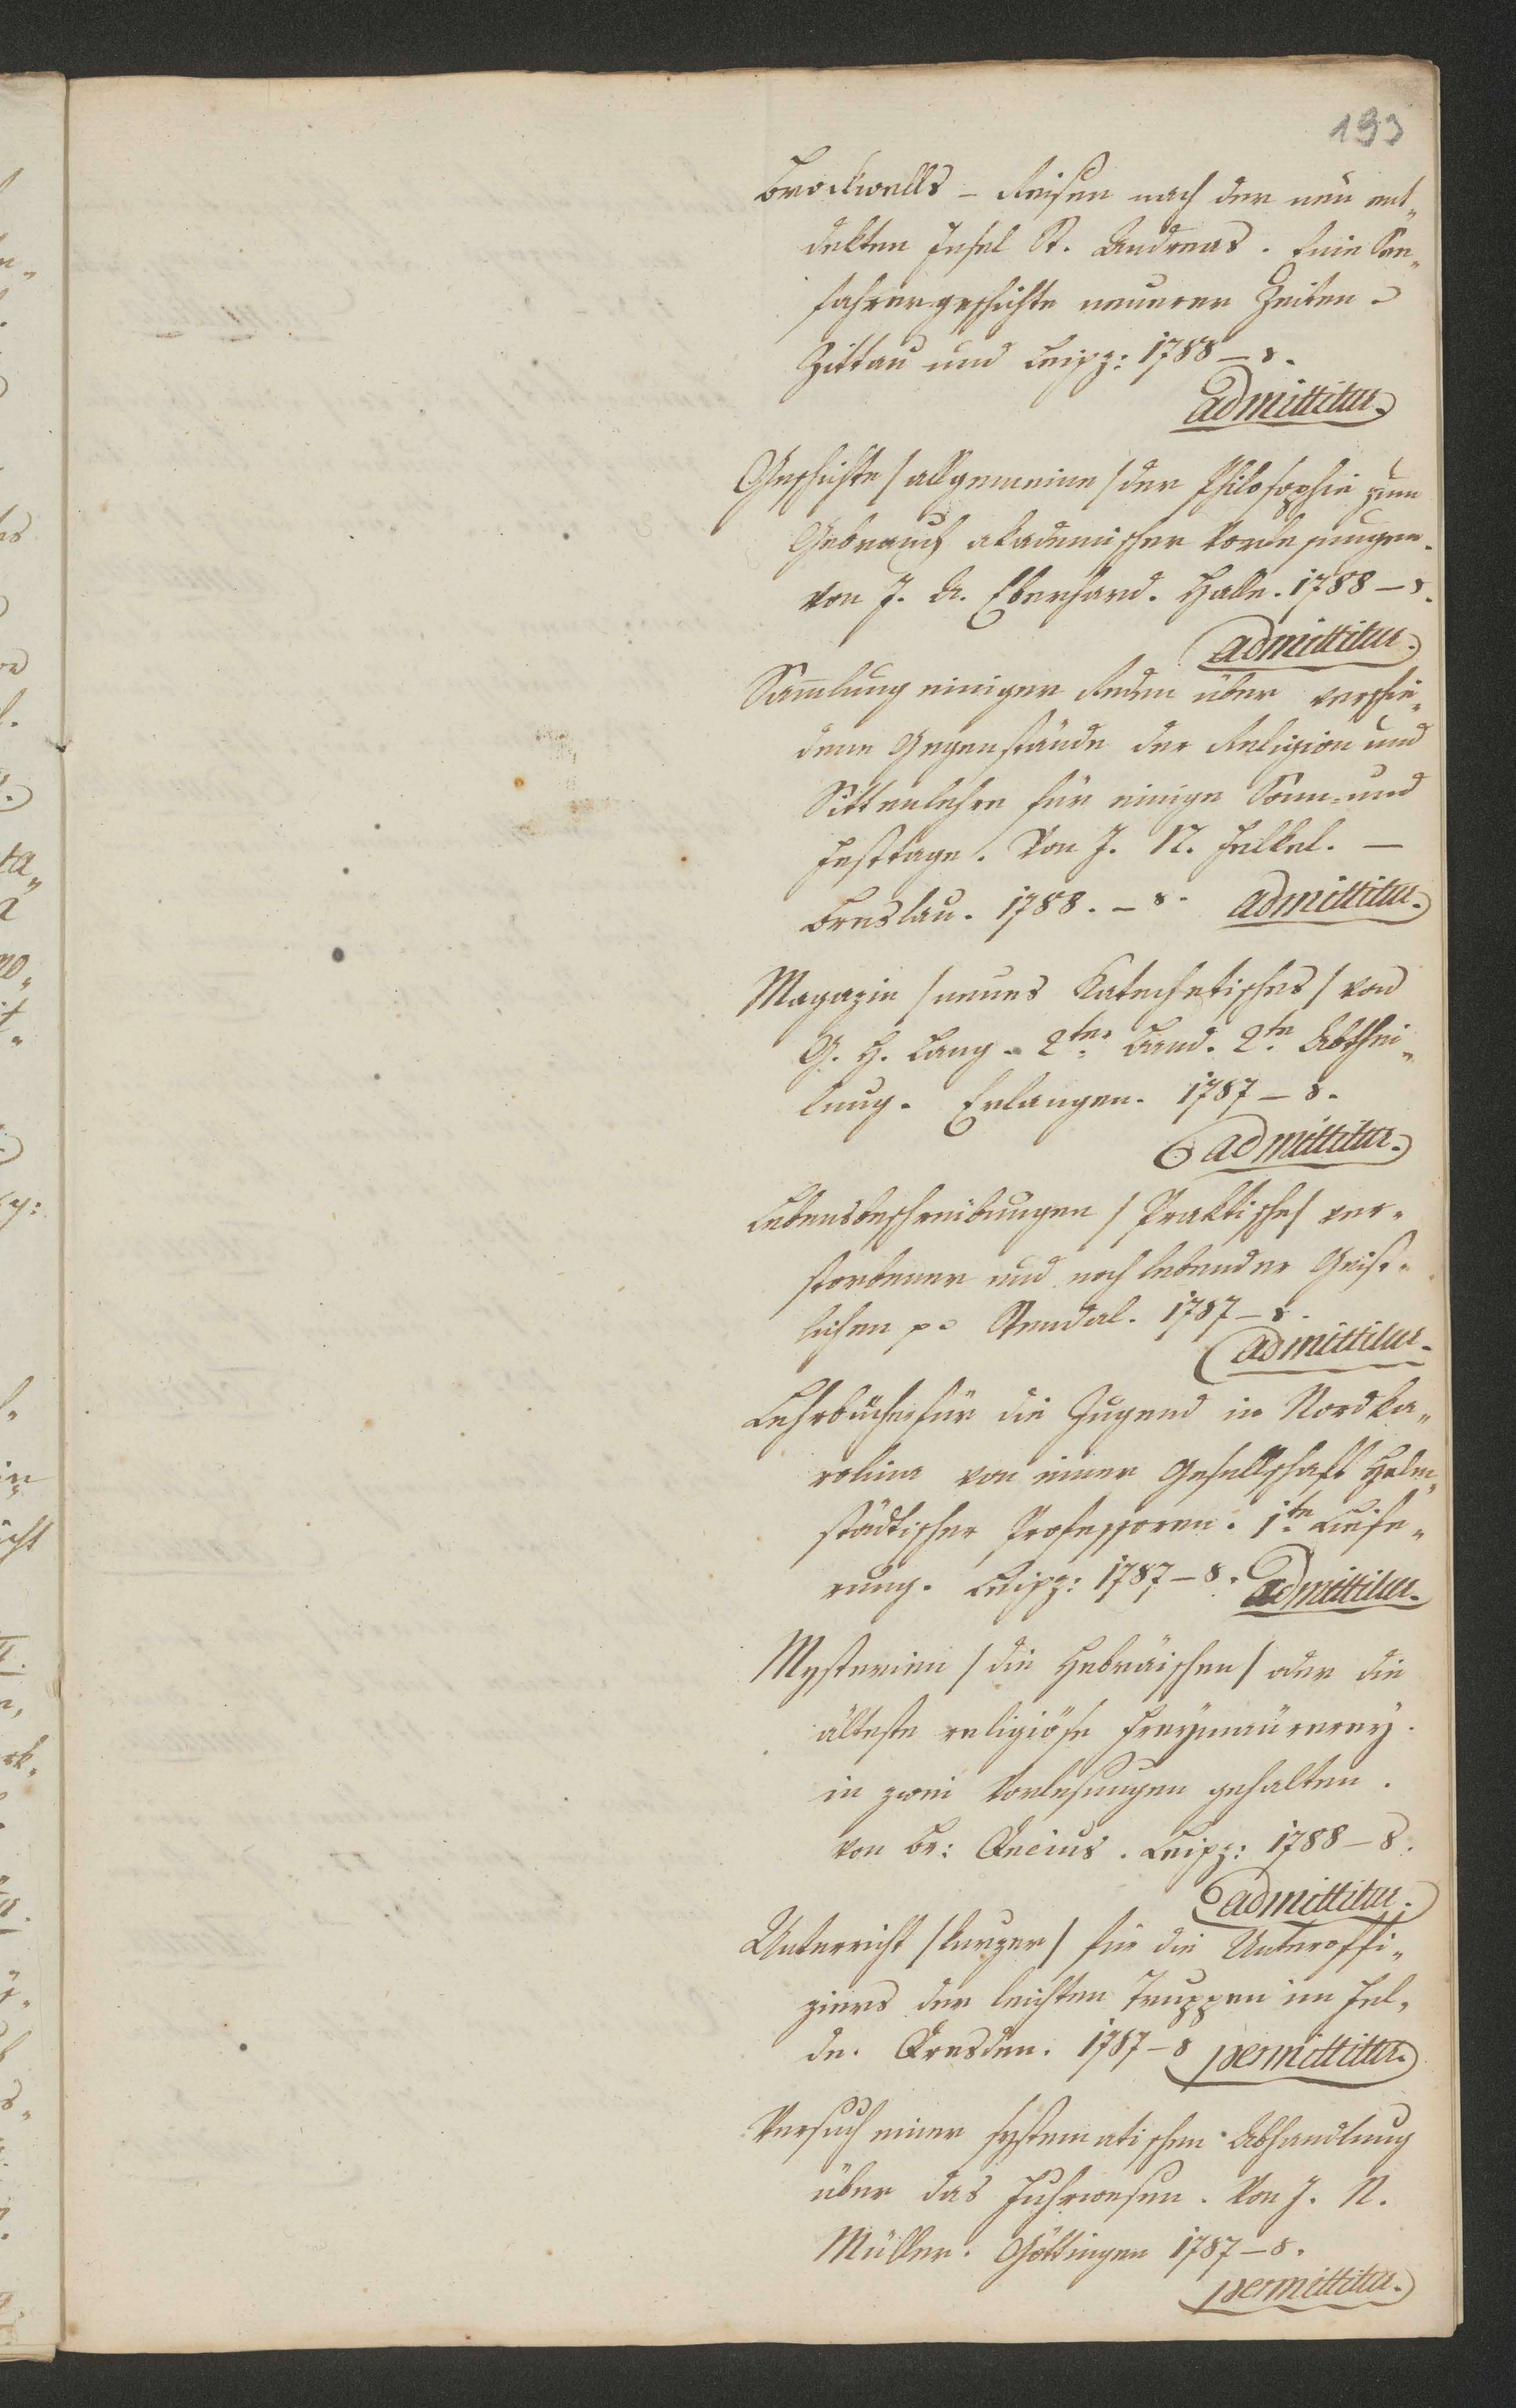 193
Brockwells – Reisen nach der neu ent„
dekten Insel St. Andreas. Eine See„
fahrergeschichte neuerer Zeiten.
Zittau und Leipz: 1788 – 8.
admittitur.
Geschichte /allgemeine/ der Philosophie zum
Gebrauch akademischer Vorlesungen.
Von J. A. Eberhard. Halle. 1788 – 8.
admittitur.
Sam̄lung einiger Reden über verschie„
dene Gegenstände der Religion und
Sittenlehre für einige Sonn- und
Festtage. Von J. N. Felkel. –
Breslau. 1788. – 8. admittitur.
Magazin /neues Katechetisches/ von
G. H. Lang – 2ter Band. 2te Abthei„
lung. Erlangen. 1787 – 8.
admittitur.
Lebensbeschreibungen /Praktische/ ver„
storbener und noch lebender Geist„
lichen p. Stendal. 1787 – 8.
admittitur.
Lehrbücher für die Jugend in Nordka„
rolina von einer Gesellschaft Helm„
städtischer Professoren. 1te Liefe„
rung. Leipz: 1787 – 8. admittitur.
Mysterien /die Hebräischen/ oder die
älteste religiöse Freymaurerey.
in zwei Vorlesungen gehalten.
Von Br: Decius. Leipz: 1788 – 8.
admittitur.
Unterricht /kurzer/ für die Unteroffi„
ziers der leichten Truppen im Fel„
de. Dresden. 1787 – 8 permittitur.
Versuch einer systematischen Abhandlung
über das Fuhrwesen. Von J. N.
Müller. Göttingen 1787 – 8.
permittitur.